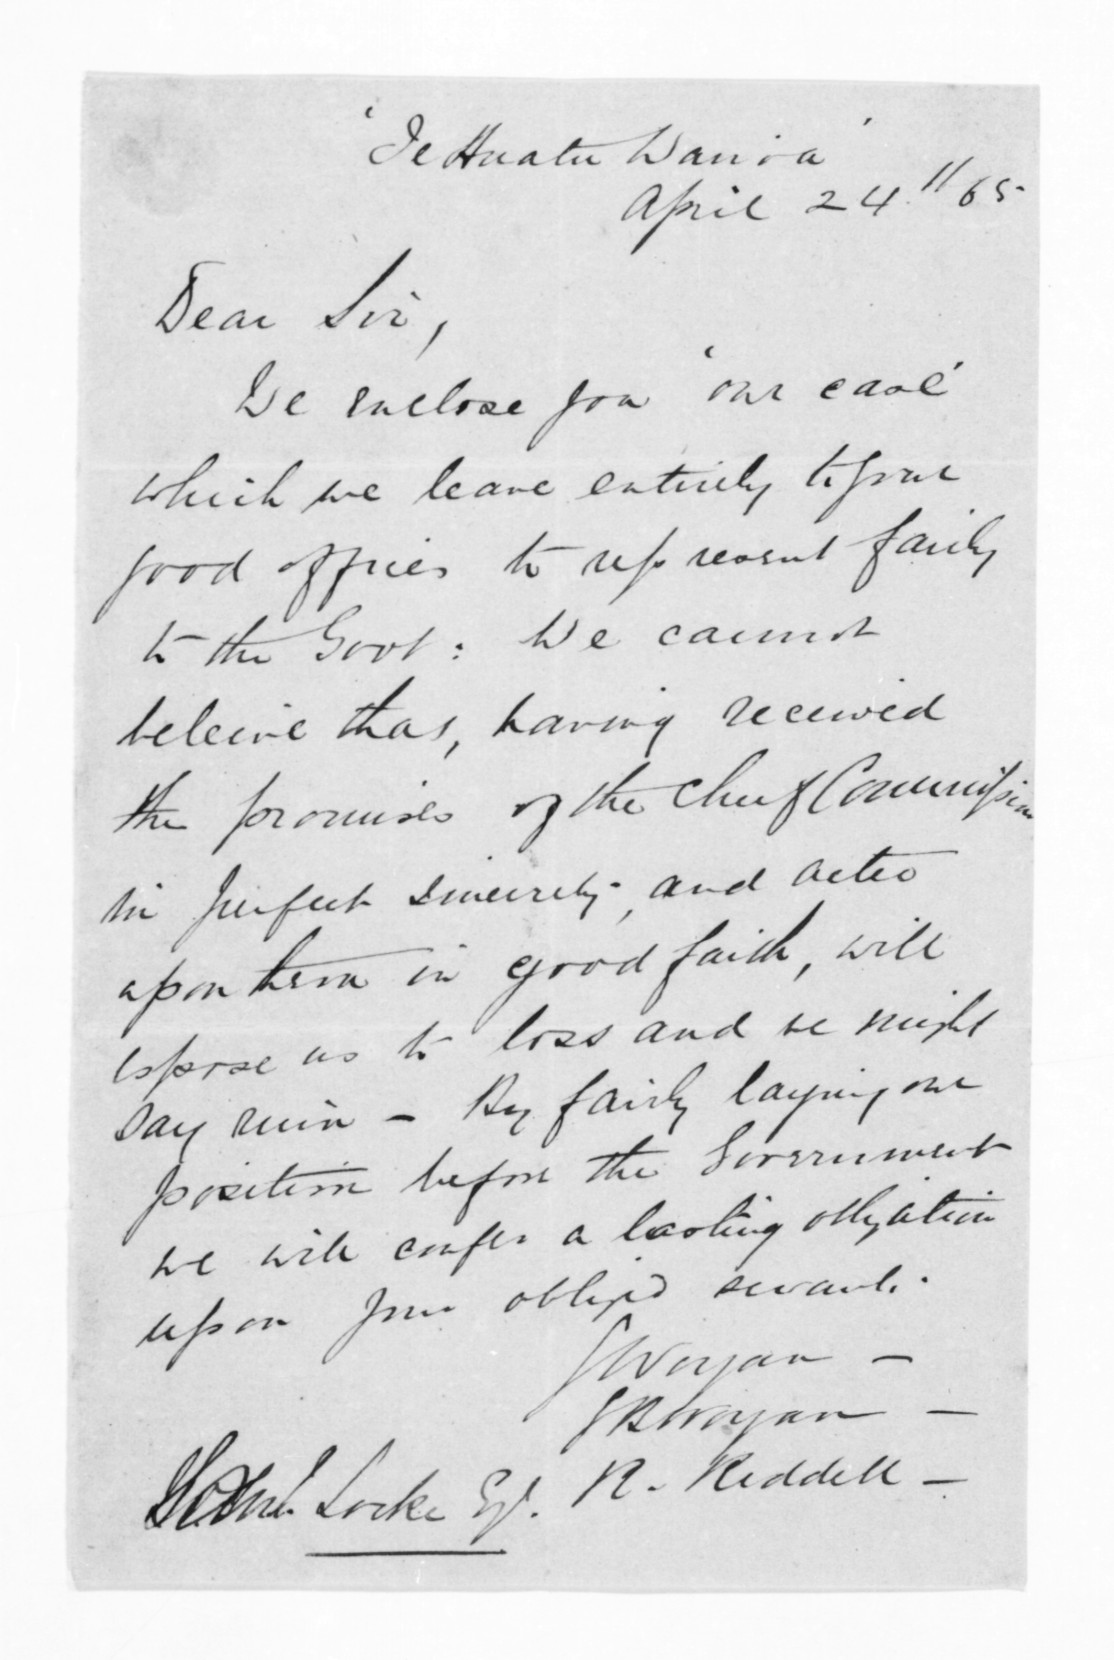 'Te Huatu Wairoa'
April 24." 65
Dear Sir,
We enclose you 'our case'
which we leave entirely to your
good offices to represent fairly
to the Govt: We cannot
beleive that, having received
the promises of the Chief Commission
in perfect sincerity, and acted
upon them in good faith, will
expose us to loss and we might
say ruin - By fairly laying our
position before the Government
we will confer a lasting obligation
upon your oblig'd servants.
J Woyan -
J B Woyan -
R. Riddell -
Locke Esq.